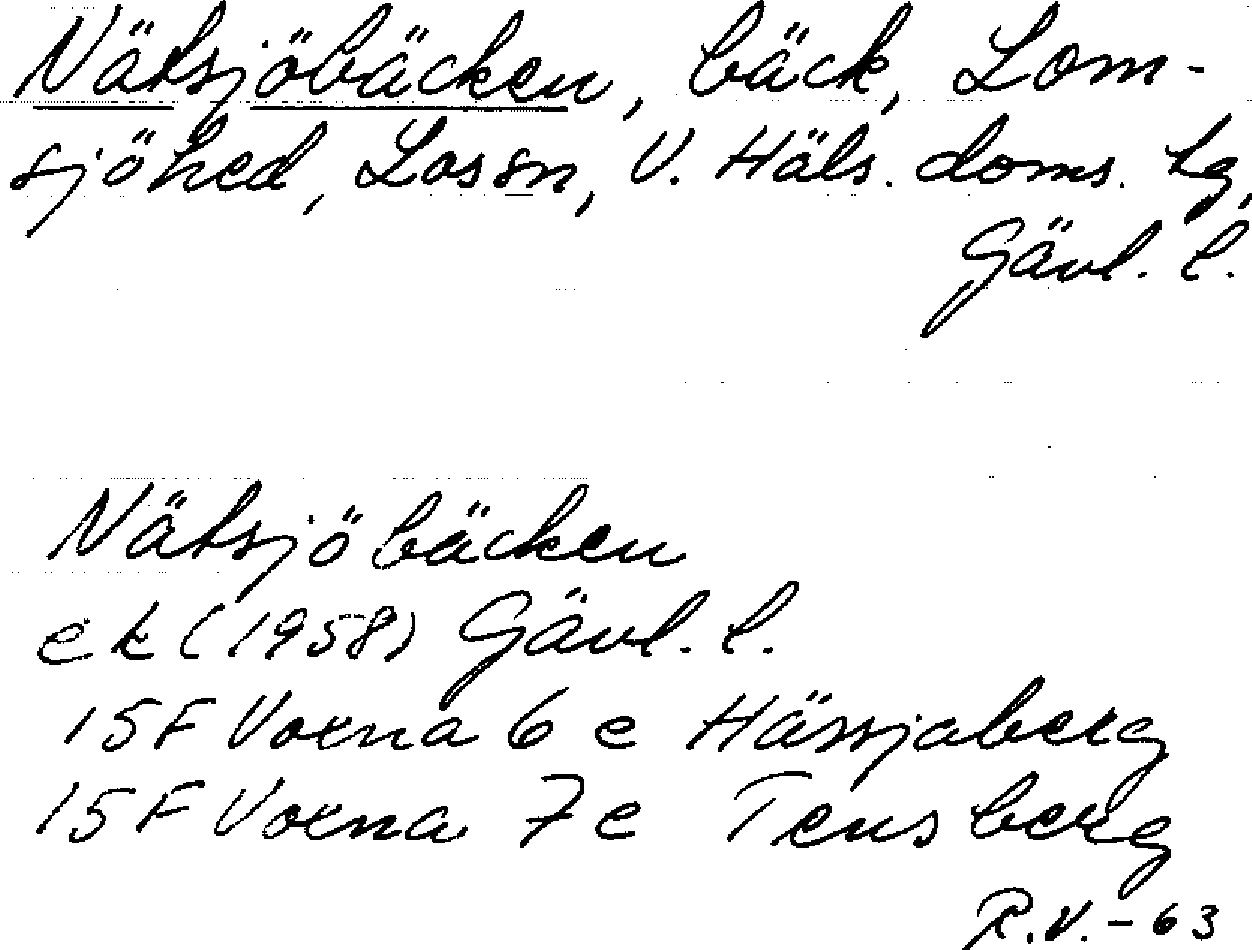 Nätsjöbäcken, bäck, Lom-
sjöhed, Los sn, V. Häls. doms. lg,
Gävl. l.
Nätsjöbäcken
ek (1958) Gävl. l.
15F Voxna 6 e Hässjaberg
15F Voxna 7e Tensberg
R.V. - 63